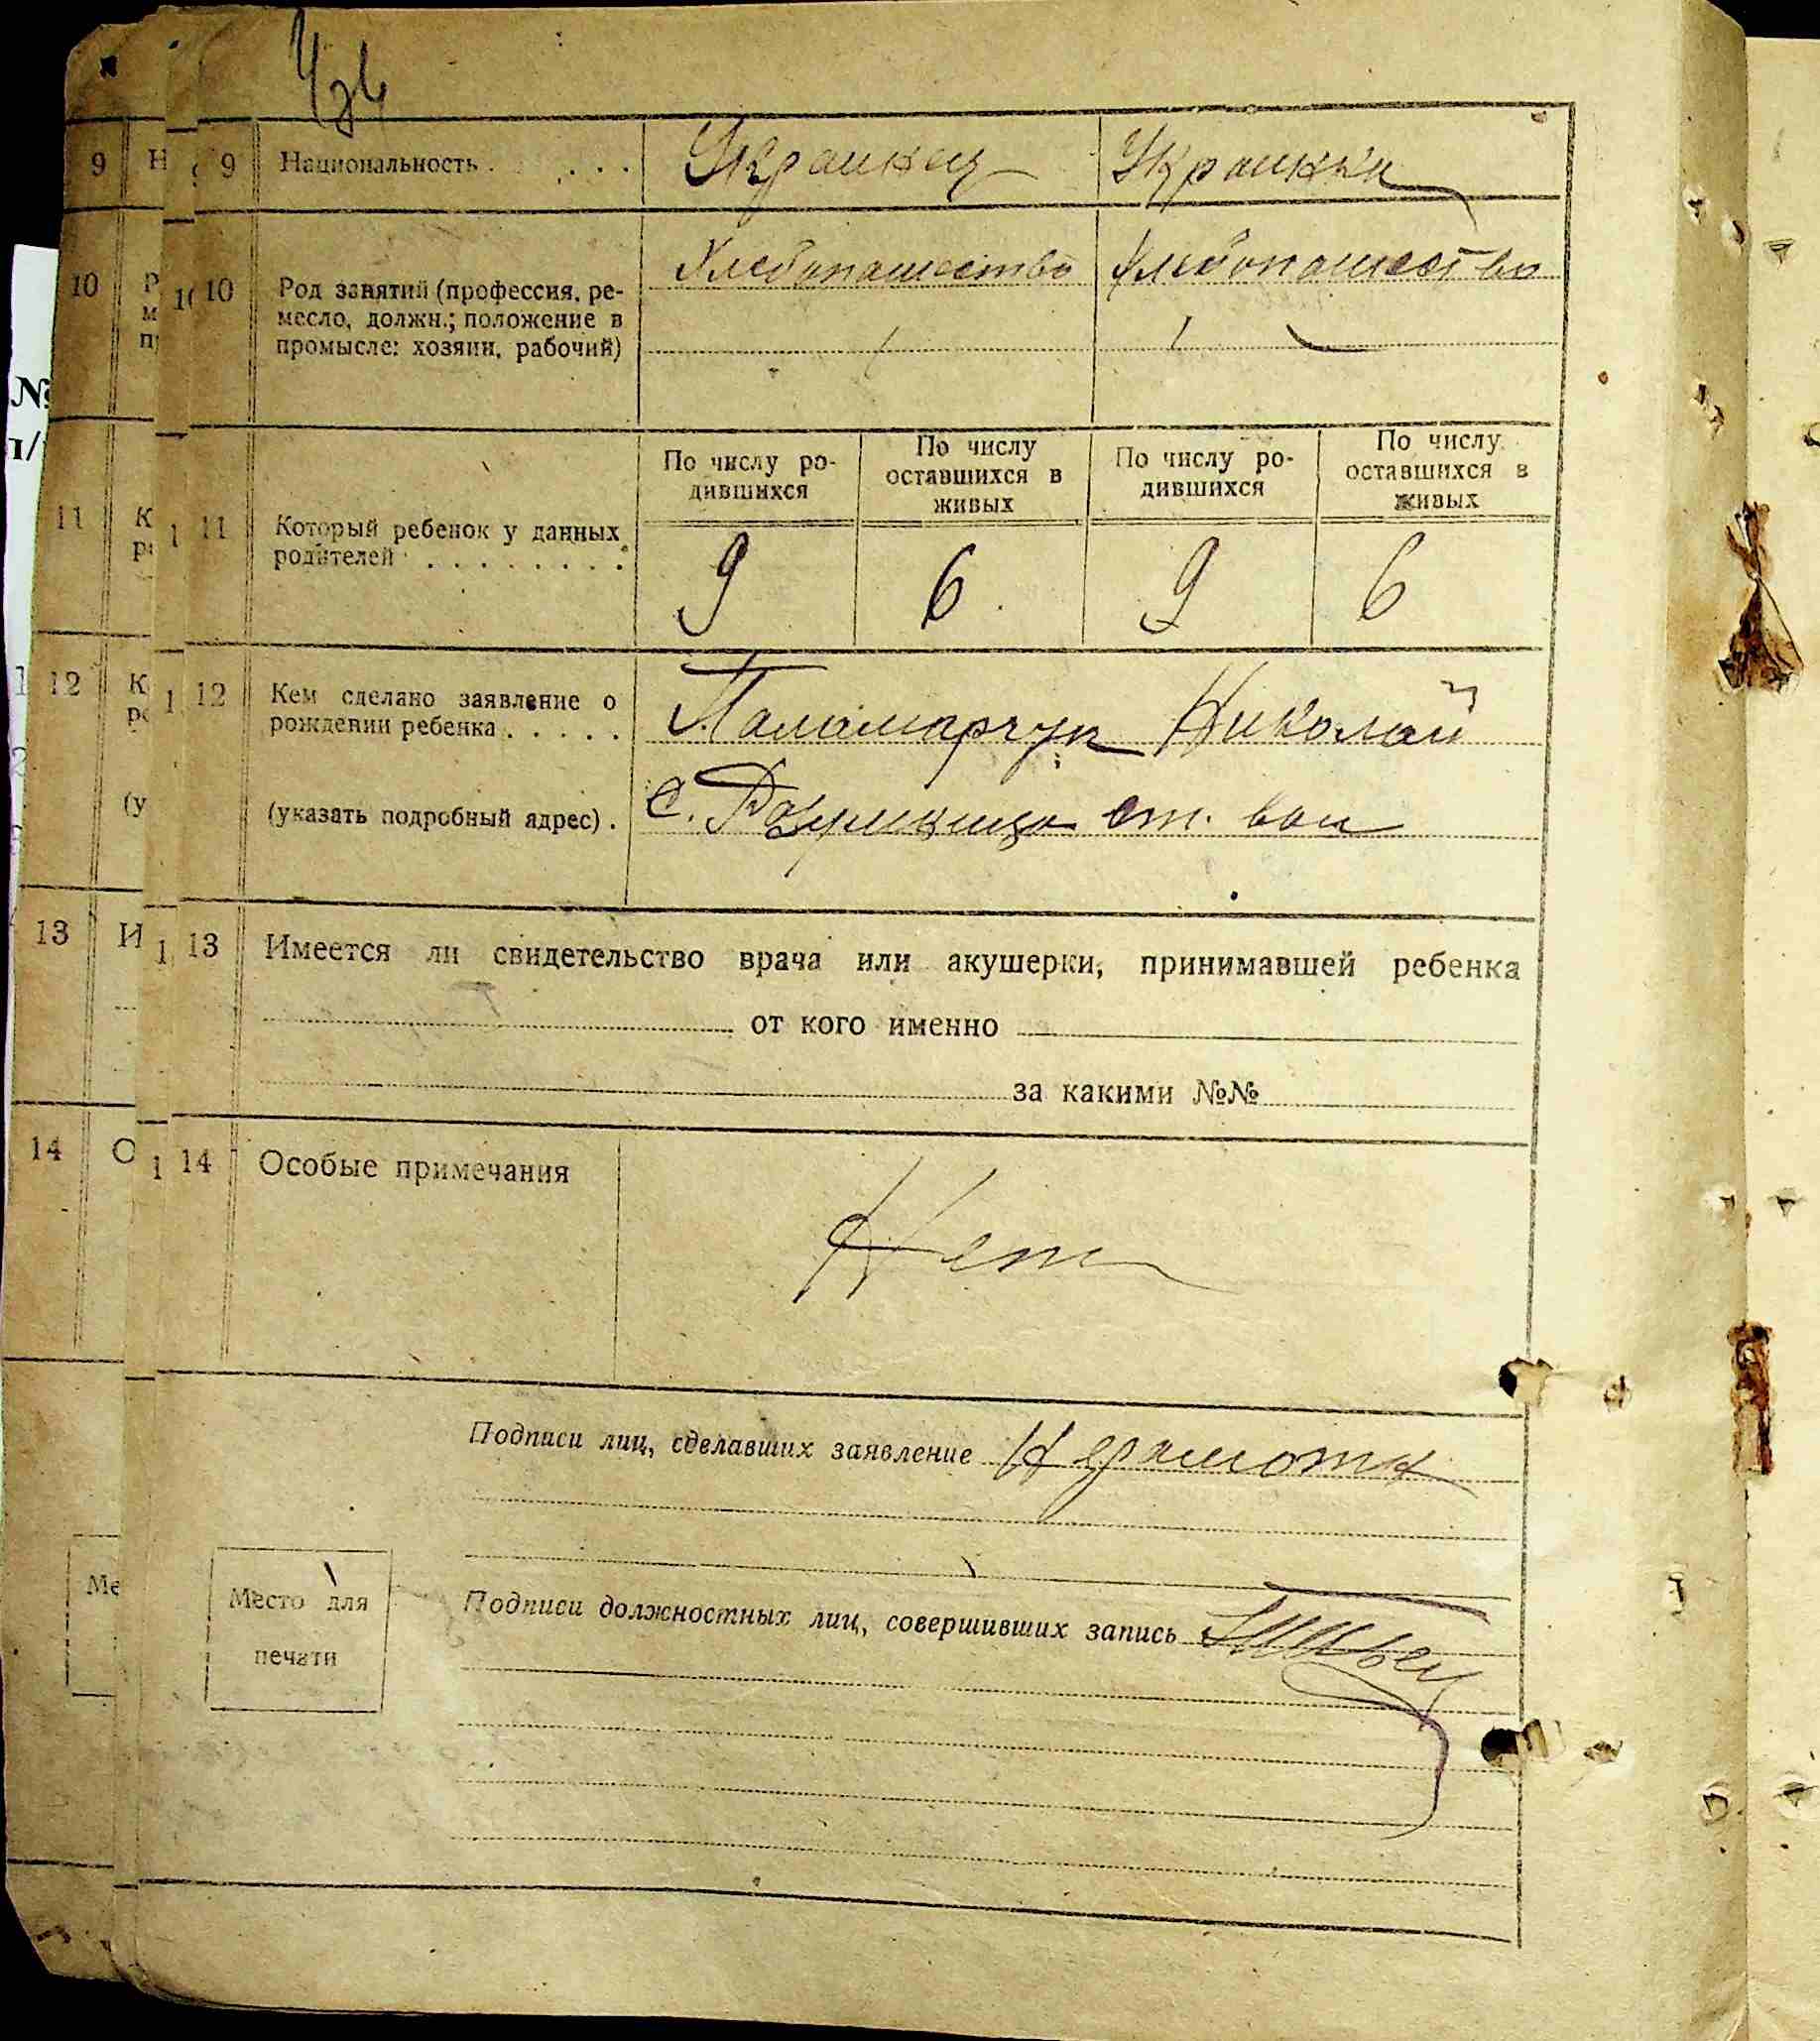 9 Национальность . . . . Украинец Украинка
10 Род занятий (профессия, ре-
месло, должн.; положение в
промысле: хозяин, рабочий)
Хлебопашество Хлебопашество
11 Который ребенок у данных
родителей . . . . . . . .
По числу ро-
дившихся
По числу
оставшихся в
живых
По числу ро-
дившихся
По числу
оставшихся в
живых
9 6 9 6
12 Кем сделано заявление о
рождении ребенка . . . . . Паламарчук Николай
(указать подробный адрес) . с.
13 Имеется ли свидетельство врача или акушерки, принимавшей ребенка
от кого именно
за какими №№
14 Особые примечания
Нет
Подписи лиц, сделавших заявление Неграмотн
Место для
печати
Подписи должностных лиц, совершивших запись